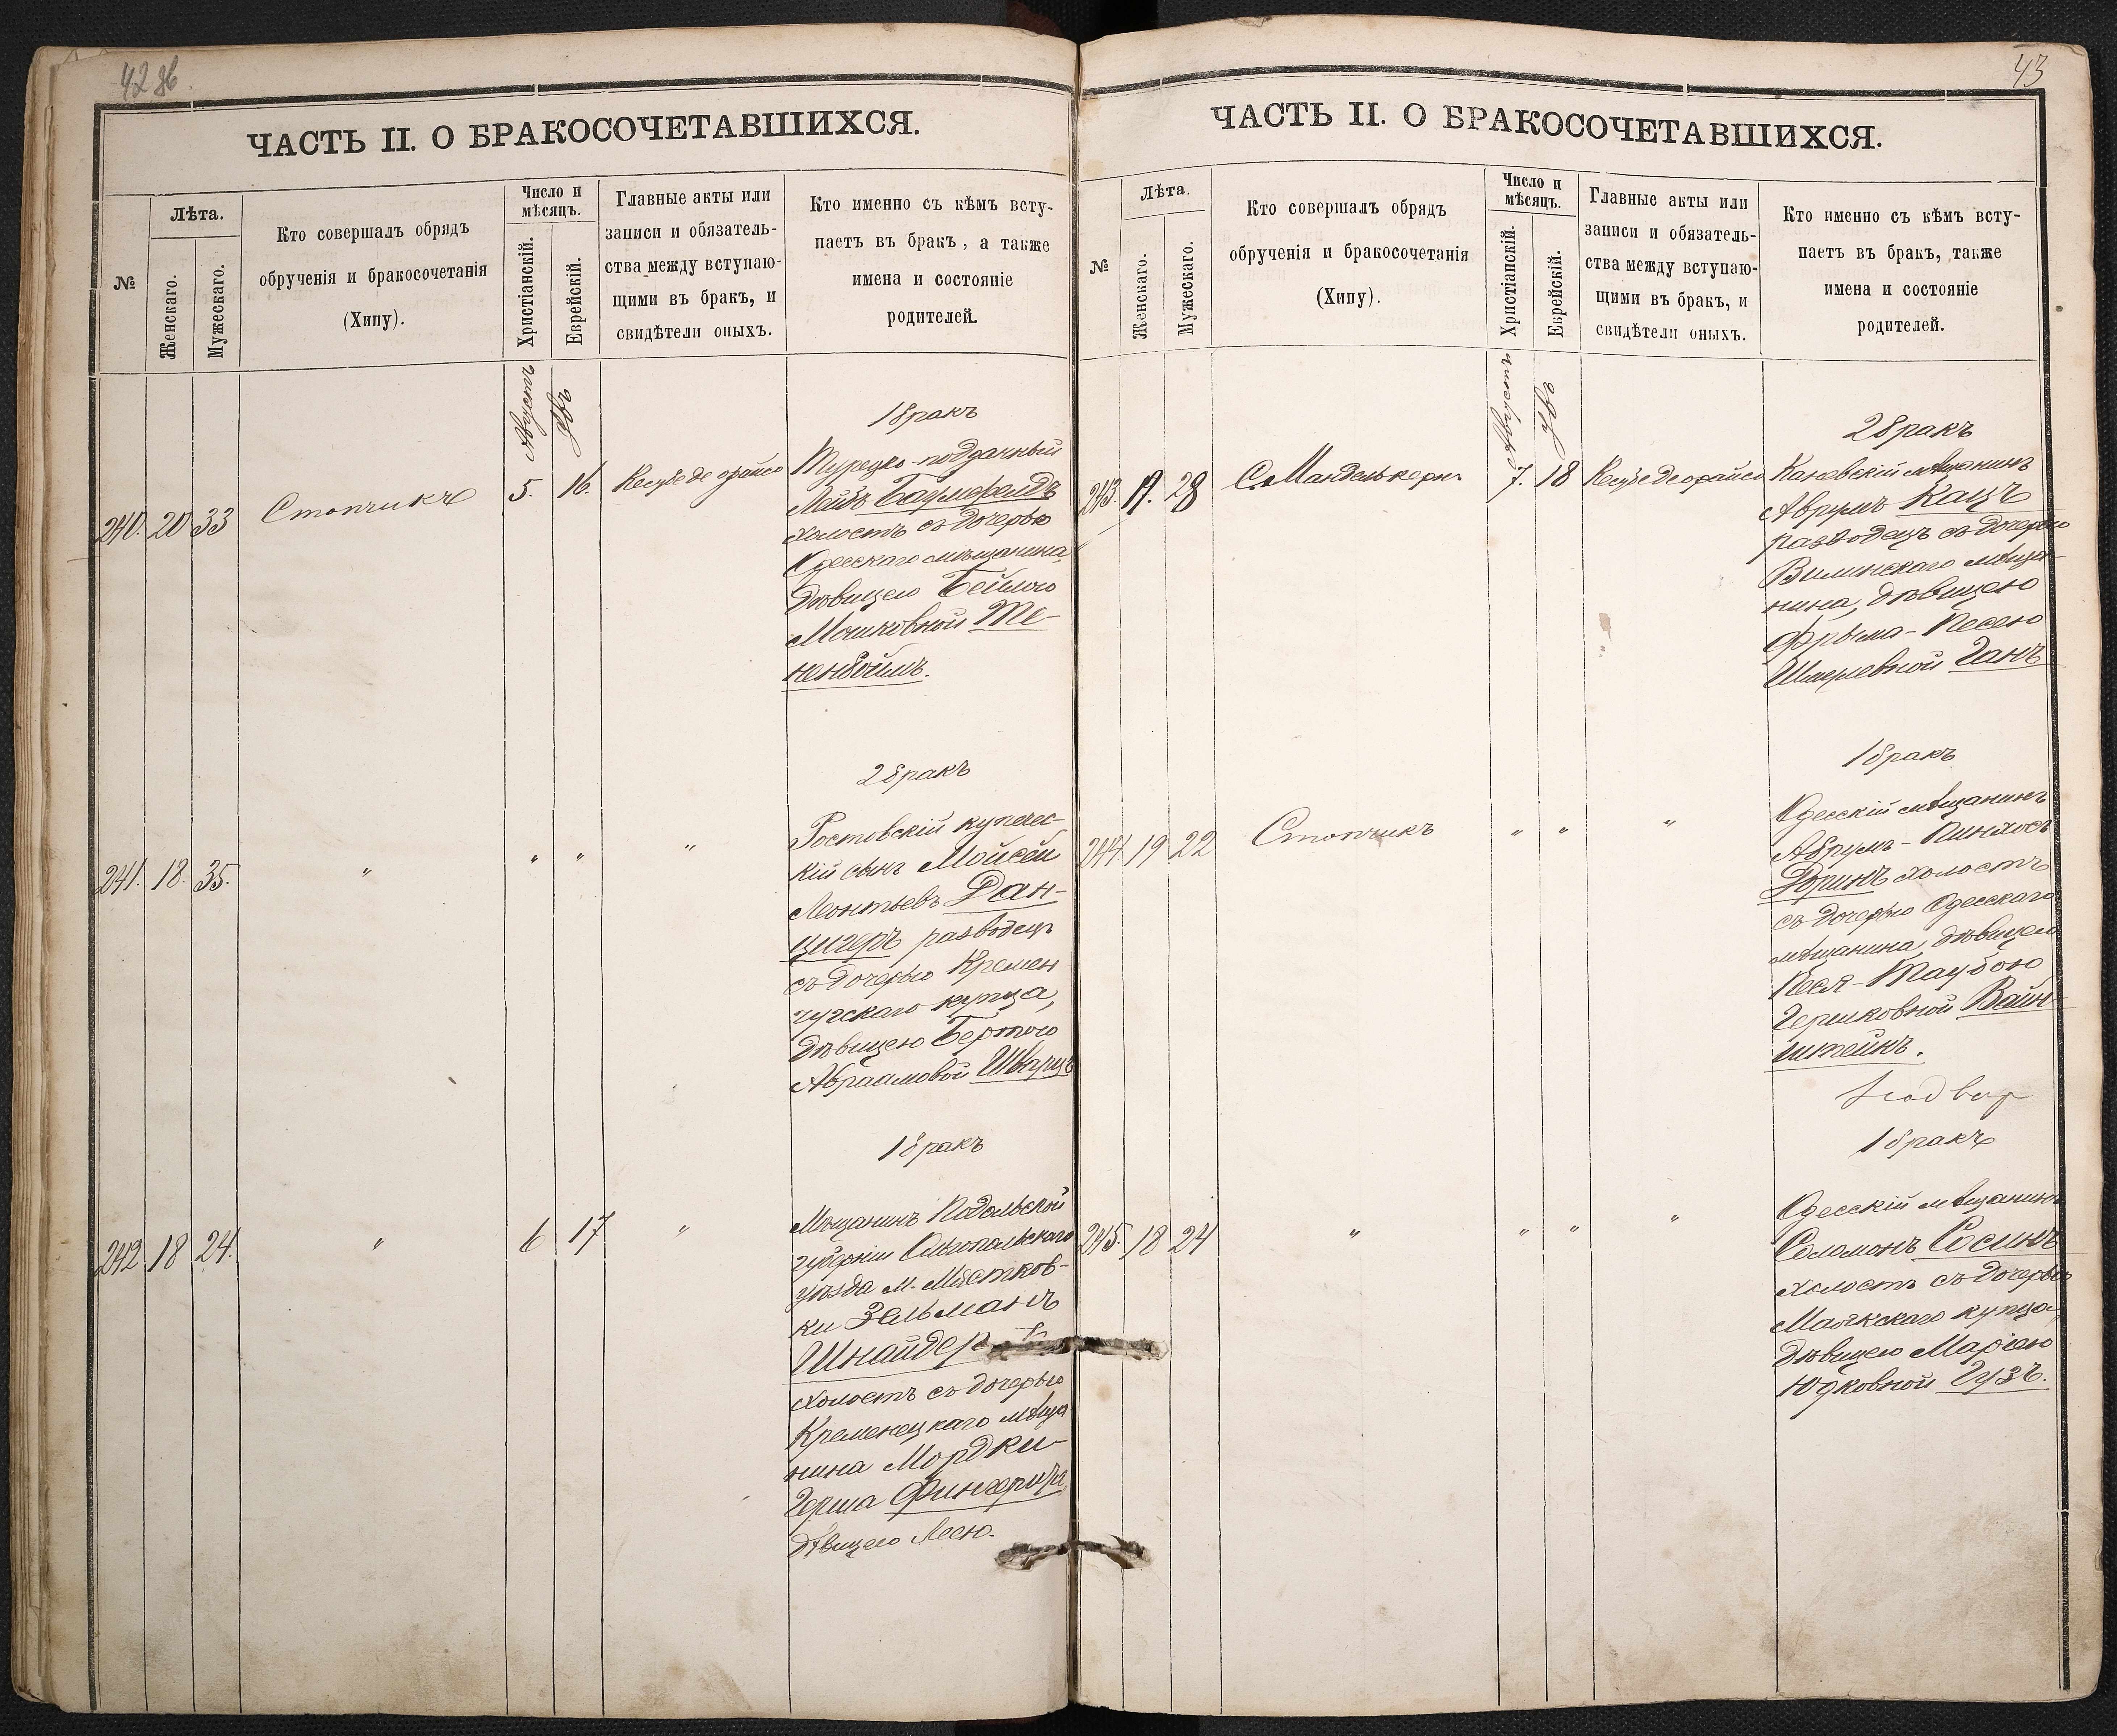 42 об.
ЧАСТЬ II. О БРАКОСОЧЕТАВШИХСЯ.
№
Лѣта.
Женскаго.
Мужескаго.
Кто совершалъ обрядъ
обрученія и бракосочетанія
(Хипу).
Число и
мѣсяцъ.
Христіанскій.
Еврейскій.
Главные акты или
записи и обязатель-
ства между вступаю-
щими въ бракъ, и
свидѣтели оныхъ.
Кто именно съ кѣмъ всту-
паетъ въ бракъ, а также
имена и состояніе
родителей.
Августъ
1 бракъ
240. 20 33 Стопчикъ 5. 16. Кесубе де орайсо
Турецко-подданный
Лейбъ Баумфельдъ
холостъ съ дочерью
Одесскаго мѣщанина,
дѣвицею Бейлою
Мошковной Те-
ненбоймъ.
2 бракъ
241. 18. 35. " " " "
Ростовскій купечес-
кій сынъ Мойсей
Леонтьевъ Дан-
цигеръ разводецъ
съ дочерью Кремен
чугскаго купца,
дѣвицею Бертою
Абраамовой Шварцъ
1 бракъ
242. 18 24. " 6 17 "
Мѣщанинъ Подольской
губерніи Ольгопольскаго
уѣзда м. Мястков-
ки Зельманъ
Шнайдер
холостъ съ дочерью
Кременецкаго мѣща
нина Мордки-
Герша Фингерита
дѣвицею Лесю.
43
ЧАСТЬ II. О БРАКОСОЧЕТАВШИХСЯ.
№
Лѣта.
Женскаго.
Мужескаго.
Кто совершалъ обрядъ
обрученія и бракосочетанія
(Хипу).
Число и
мѣсяцъ.
Христіанскій.
Еврейскій.
Главные акты или
записи и обязатель-
ства между вступаю-
щими въ бракъ, и
свидѣтели оныхъ.
Кто именно съ кѣмъ всту-
паетъ въ бракъ, также
имена и состояніе
родителей.
Августъ
2 бракъ
243. 19. 28 С. Манделькернъ 7. 18 Кесубе де орайсо
Каневскій мѣщанинъ
Аврумъ Кацъ
разводецъ съ дочерью
Виленскаго мѣща-
нина, дѣвицею
Фрыма-Песею
Шмерлевной Ганъ
1 бракъ
244. 19 22 Стопчикъ " " "
Одесскій мѣщанинъ
Абрумъ-Пинхосъ
Доринъ холостъ
съ дочерью Одесскаго
мѣщанина, дѣвицею
Песя-Таубою
Гершковной Вайн-
штейнъ.
1 бракъ
245. 18 24 " " " "
Одесскій мѣщанинъ
Соломонъ Сосинъ
холостъ съ дочерью
Маякскаго купца,
дѣвицею Маріею
Юдковной Гузъ.